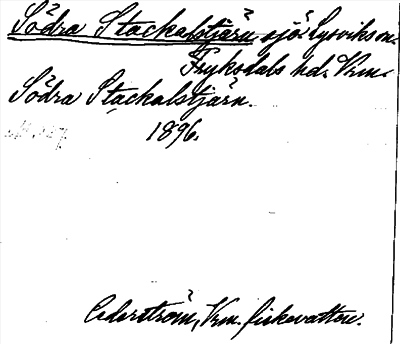 Södra Stackalstjärn sjö Lysvik sn.
Fryksdals hd. Vrm.
Södra Stackalstjärn.
1896.
Cederström, Vrm. fiskevatten.